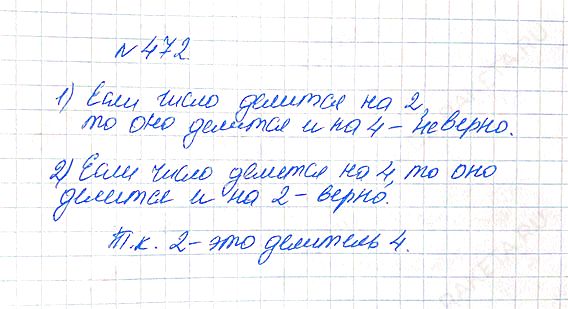 № 472.
1) Если число делится на 2,
то оно делится и на 4 – неверно.
2) Если число делится на 4, то оно
делится и на 2 – верно.
Т.к. 2 – это делитель 4.